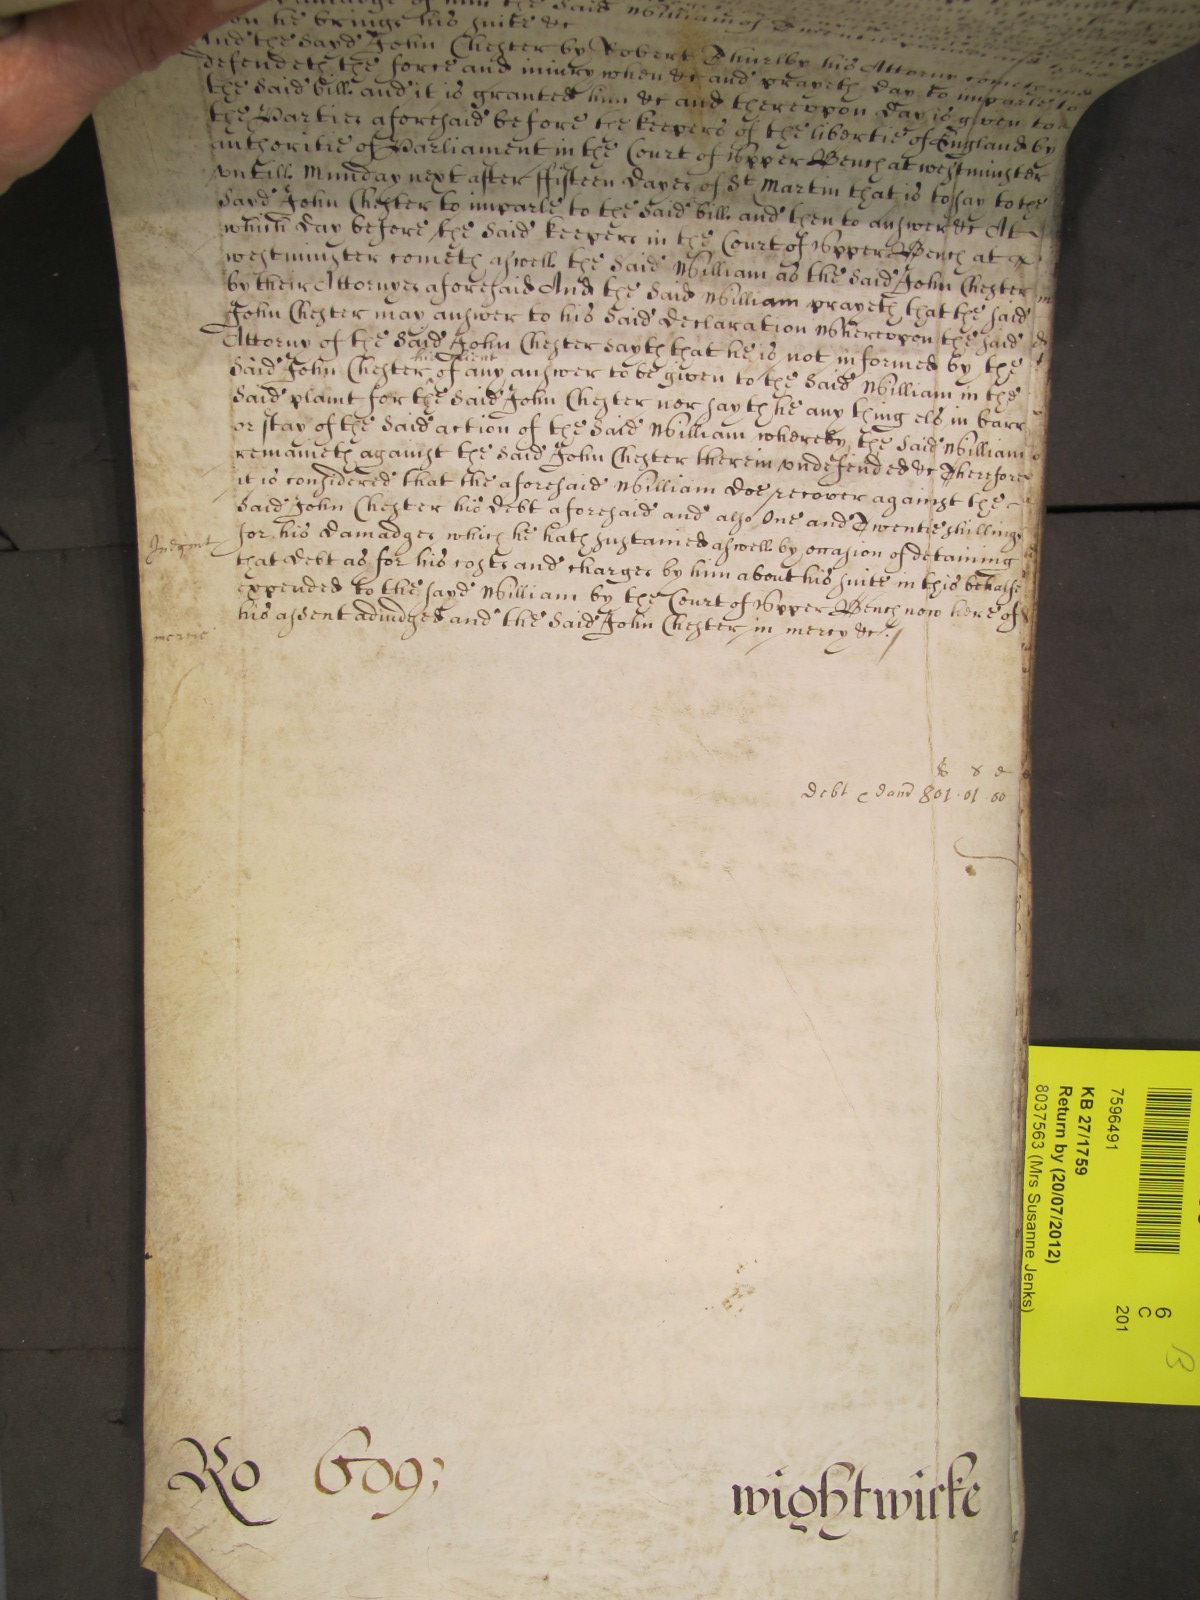 damadge of him the said William of Twentie
on he brings his suite &c
And the sayd John Chester by Robert Thurlby his Attorny cometh and
defendeth the force and iniury when &c and prayeth day to imparle to
the said bill and it is granted him &c and thereupon day is given to
the Parties aforesaid before the keepers of the libertie of England by
authoritie of Parliament in the Court of Upper Bench at westminster
untill Munday next after ffifteen dayes of St Martin that is to say to the
sayd John Chester to imparle to the said bill and then to answer &c At
which day before the said keepers in the Court of Upper Bench at
westminster cometh aswell the said William as the said John Chester
by their Attornyes aforesaid And the said William prayeth that the said
John Chester may answer to his said declaration Whereupon the said
Attorny of the said John Chester sayth that he is not informed by the
said John Chester his client of any answer to be given to the said William in the
said plaint for the said John Chester nor sayth he any thing els in barr
or stay of the said action of the said William whereby the said William
remaineth against the said John Chester therein undefended &c Therefore
it is considered that the aforesaid William doe recover against the
said John Chester his debt aforesaid and also One and Twentie shillings
Iudgmt
for his damadges which he hath sustained aswell by occasion of detaining
that debt as for his costs and charges by him about his suite in this behalfe
expended to the sayd William by the Court of Upper Bench now here of
his assent adiudged and the said John Chester in mercy &c.
mercie
debt & dam 801 . 01 . 00
Ro 609;
wightwicke
7596491
KB 27/1759
Return by (20/07/2012)
8037563 (Mrs Susanne Jenks)
6
C
201
B